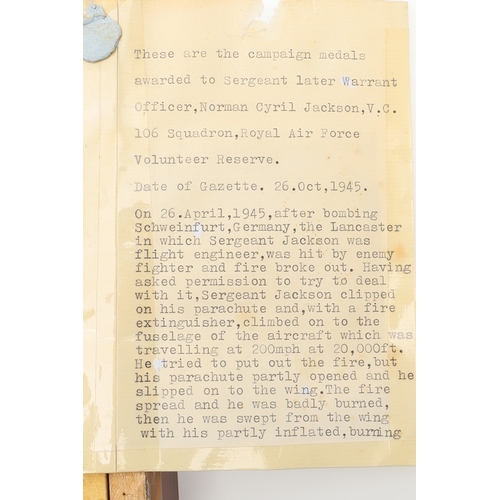 These are the campaign medals
awarded to Sergeant later Warrant
Officer,Norman Cyril Jackson,V.C.
106 Squadron,Royal Air Force
Volunteer Reserve.
Date of Gazette. 26.Oct,1945.
On 26.April,1945,after bombing
Schweinfurt,Germany,the Lancaster
in which Sergeant Jackson was
flight engineer,was hit by enemy
fighter and fire broke out. Having
asked permission to try to deal
with it,Sergeant Jackson clipped
on his parachute and,with a fire
extinguisher,climbed on to the
fuselage of the aircraft which was
travelling at 200mph at 20,000ft.
He tried to put out the fire,but
his parachute partly opened and he
slipped on to the wing.The fire
spread and he was badly burned,
then he was swept from the wing
with his partly inflated,burning